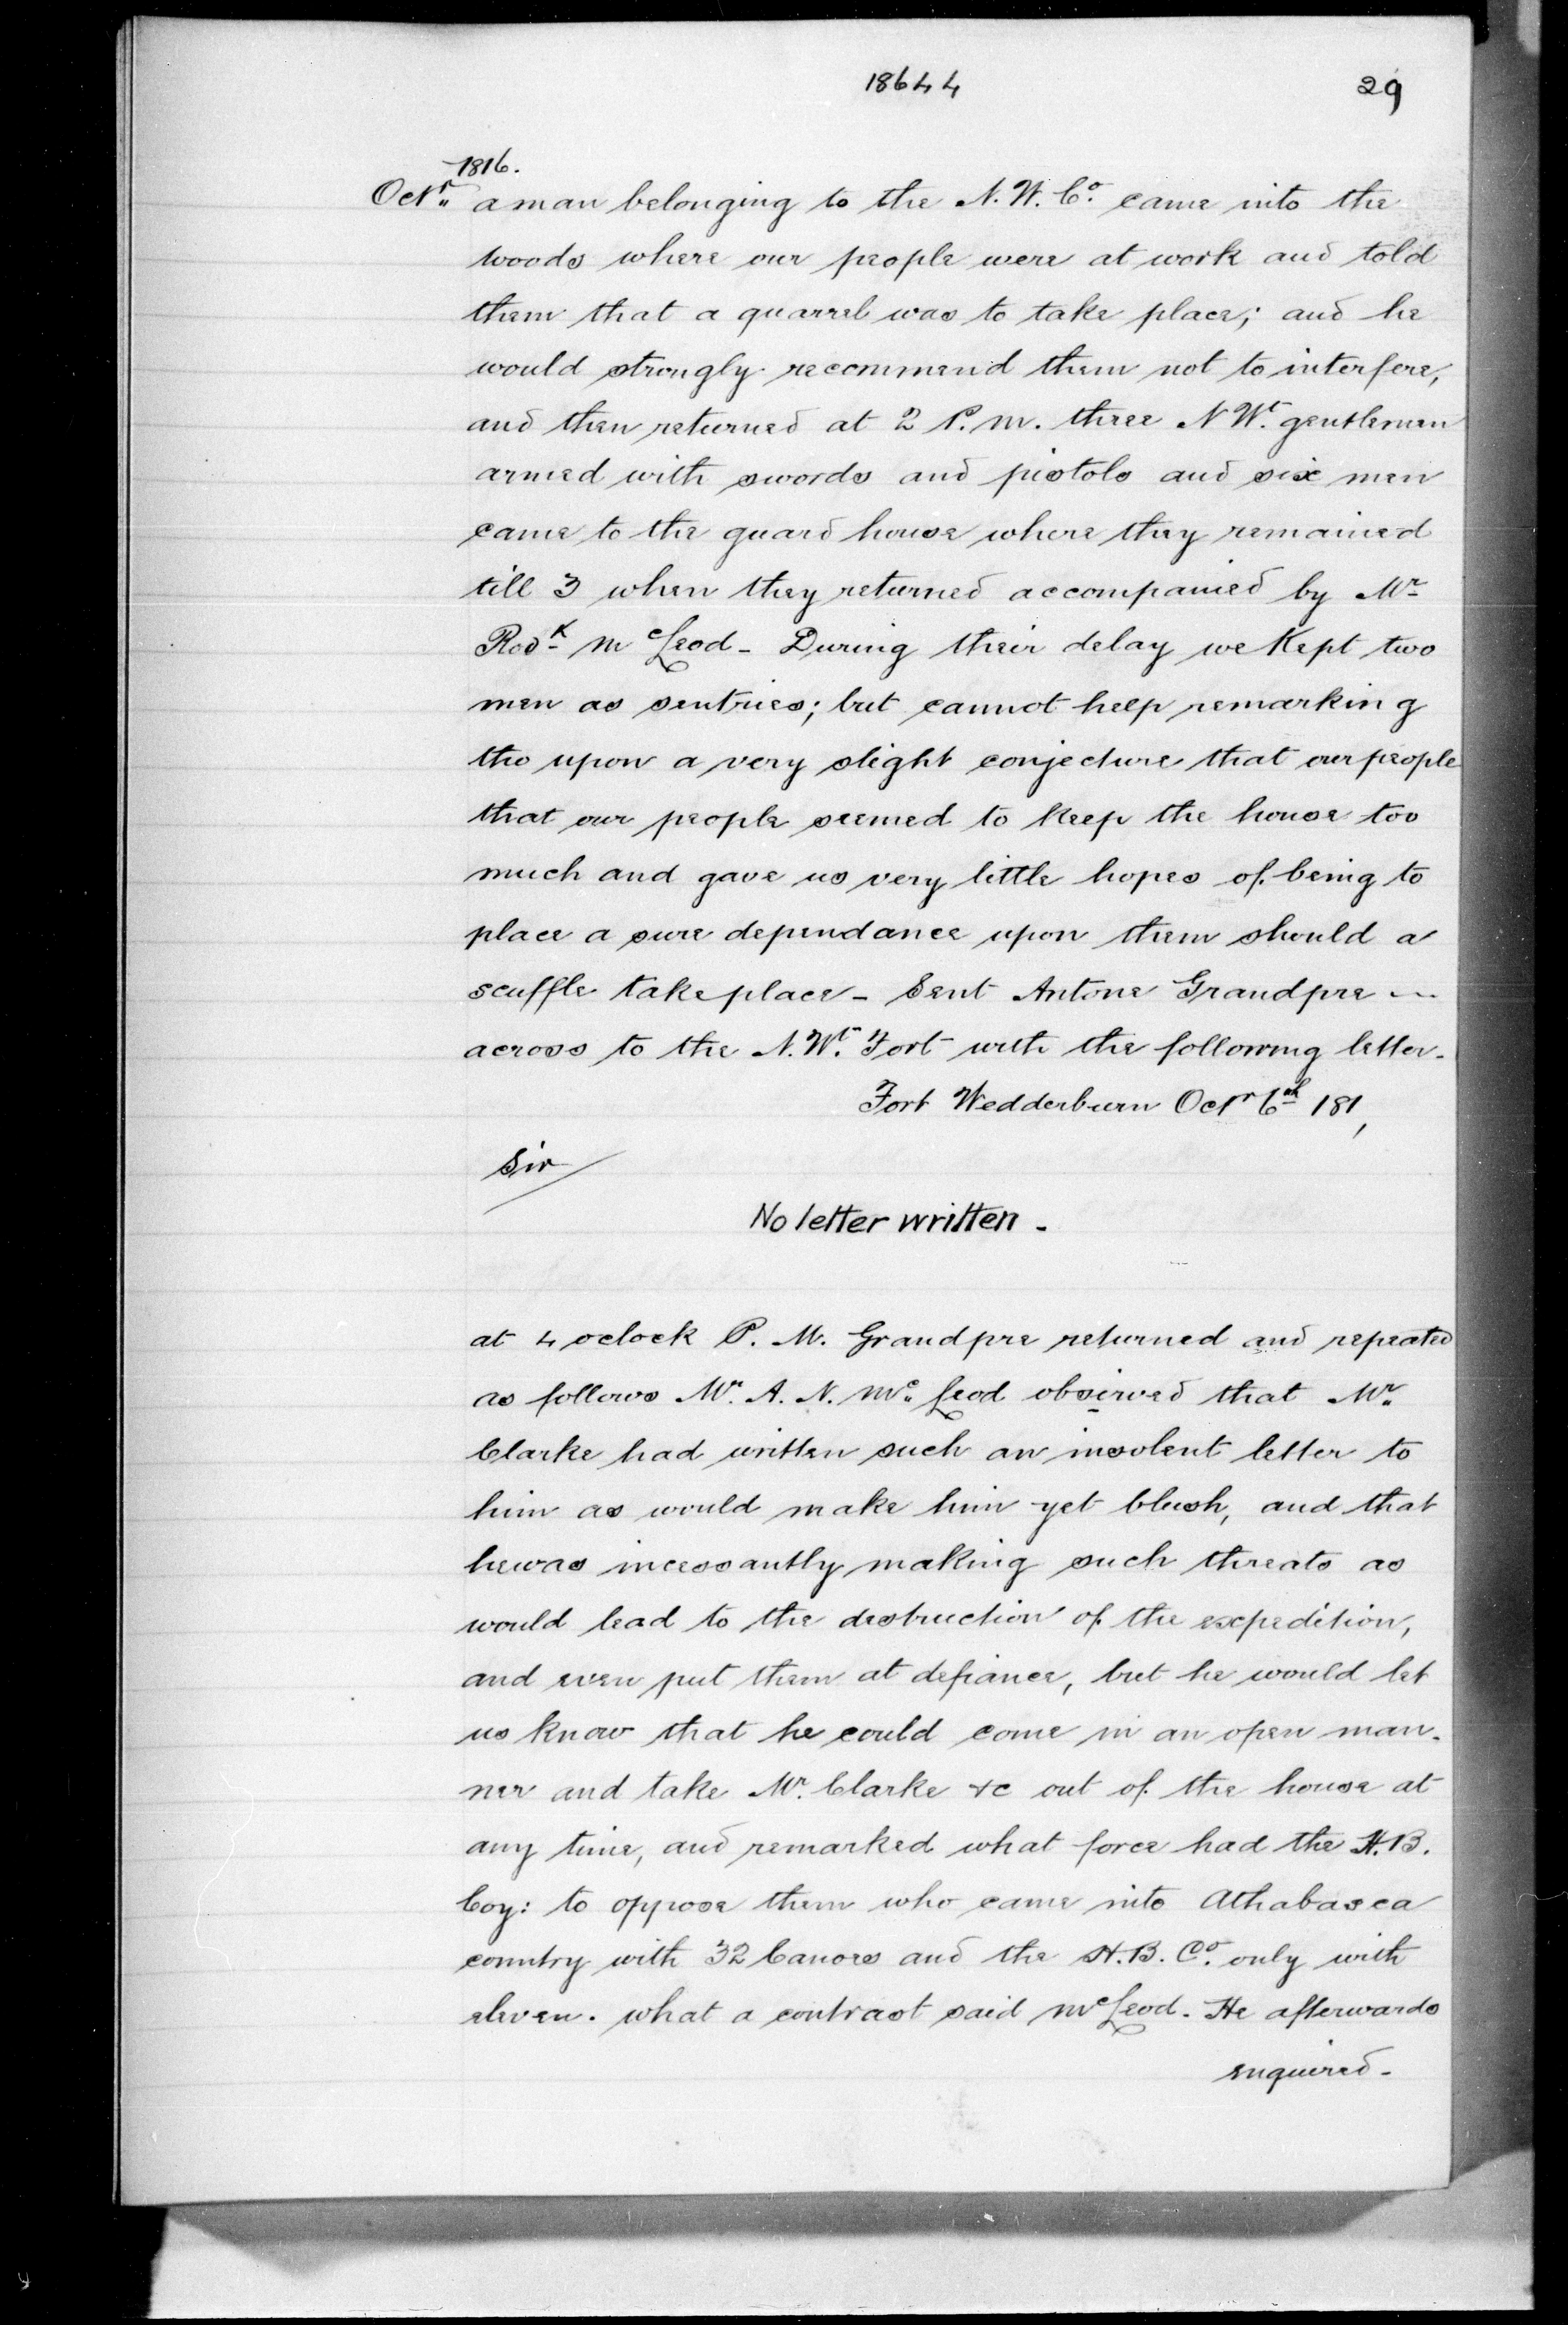 18644
29
1816.
Octr a man belonging to the N. W. Co. came into the
woods where our people were at work and told
them that a quarrel was to take place; and he
would strongly recommend them not to interfere,
and then returned at 2 P. m. three N Wt. gentlemen
armed with swords and pistols and six men
came to the guard house where they remained
till 3 when they returned accompanied by Mr
Rodk McLeod - During their delay we Kept two
men as sentries; but cannot help remarking
tho upon a very slight conjecture that our people
that our people seemed to keep the house too
much and gave us very little hopes of being to
place a sure dependance upon them should a
scuffle take place - Sent Antone Grandpre
across to the N. Wt. Fort with the following letter.
Fort Wedderburn Octr 6th 181,
Sir
No letter written -
at 4 oclock P. M. Grandpre returned and repeated
as follows Mr. A. N. McLeod obsirved that Mr
Clarke had written such an insolent letter to
him as would make him yet blush, and that
he was incessantly making such threats as
would lead to the destruction of the expedition,
and even put them at defiance, but he would let
us know that he could come in an open man-
ner and take Mr. Clarke &c out of the house at
any time, and remarked what force had the H. B.
Coy: to oppose them who came into Athabasca
country with 32 Canoes and the H. B. Co. only with
eleven. what a contrast said McLeod. He afterwards
enquired -